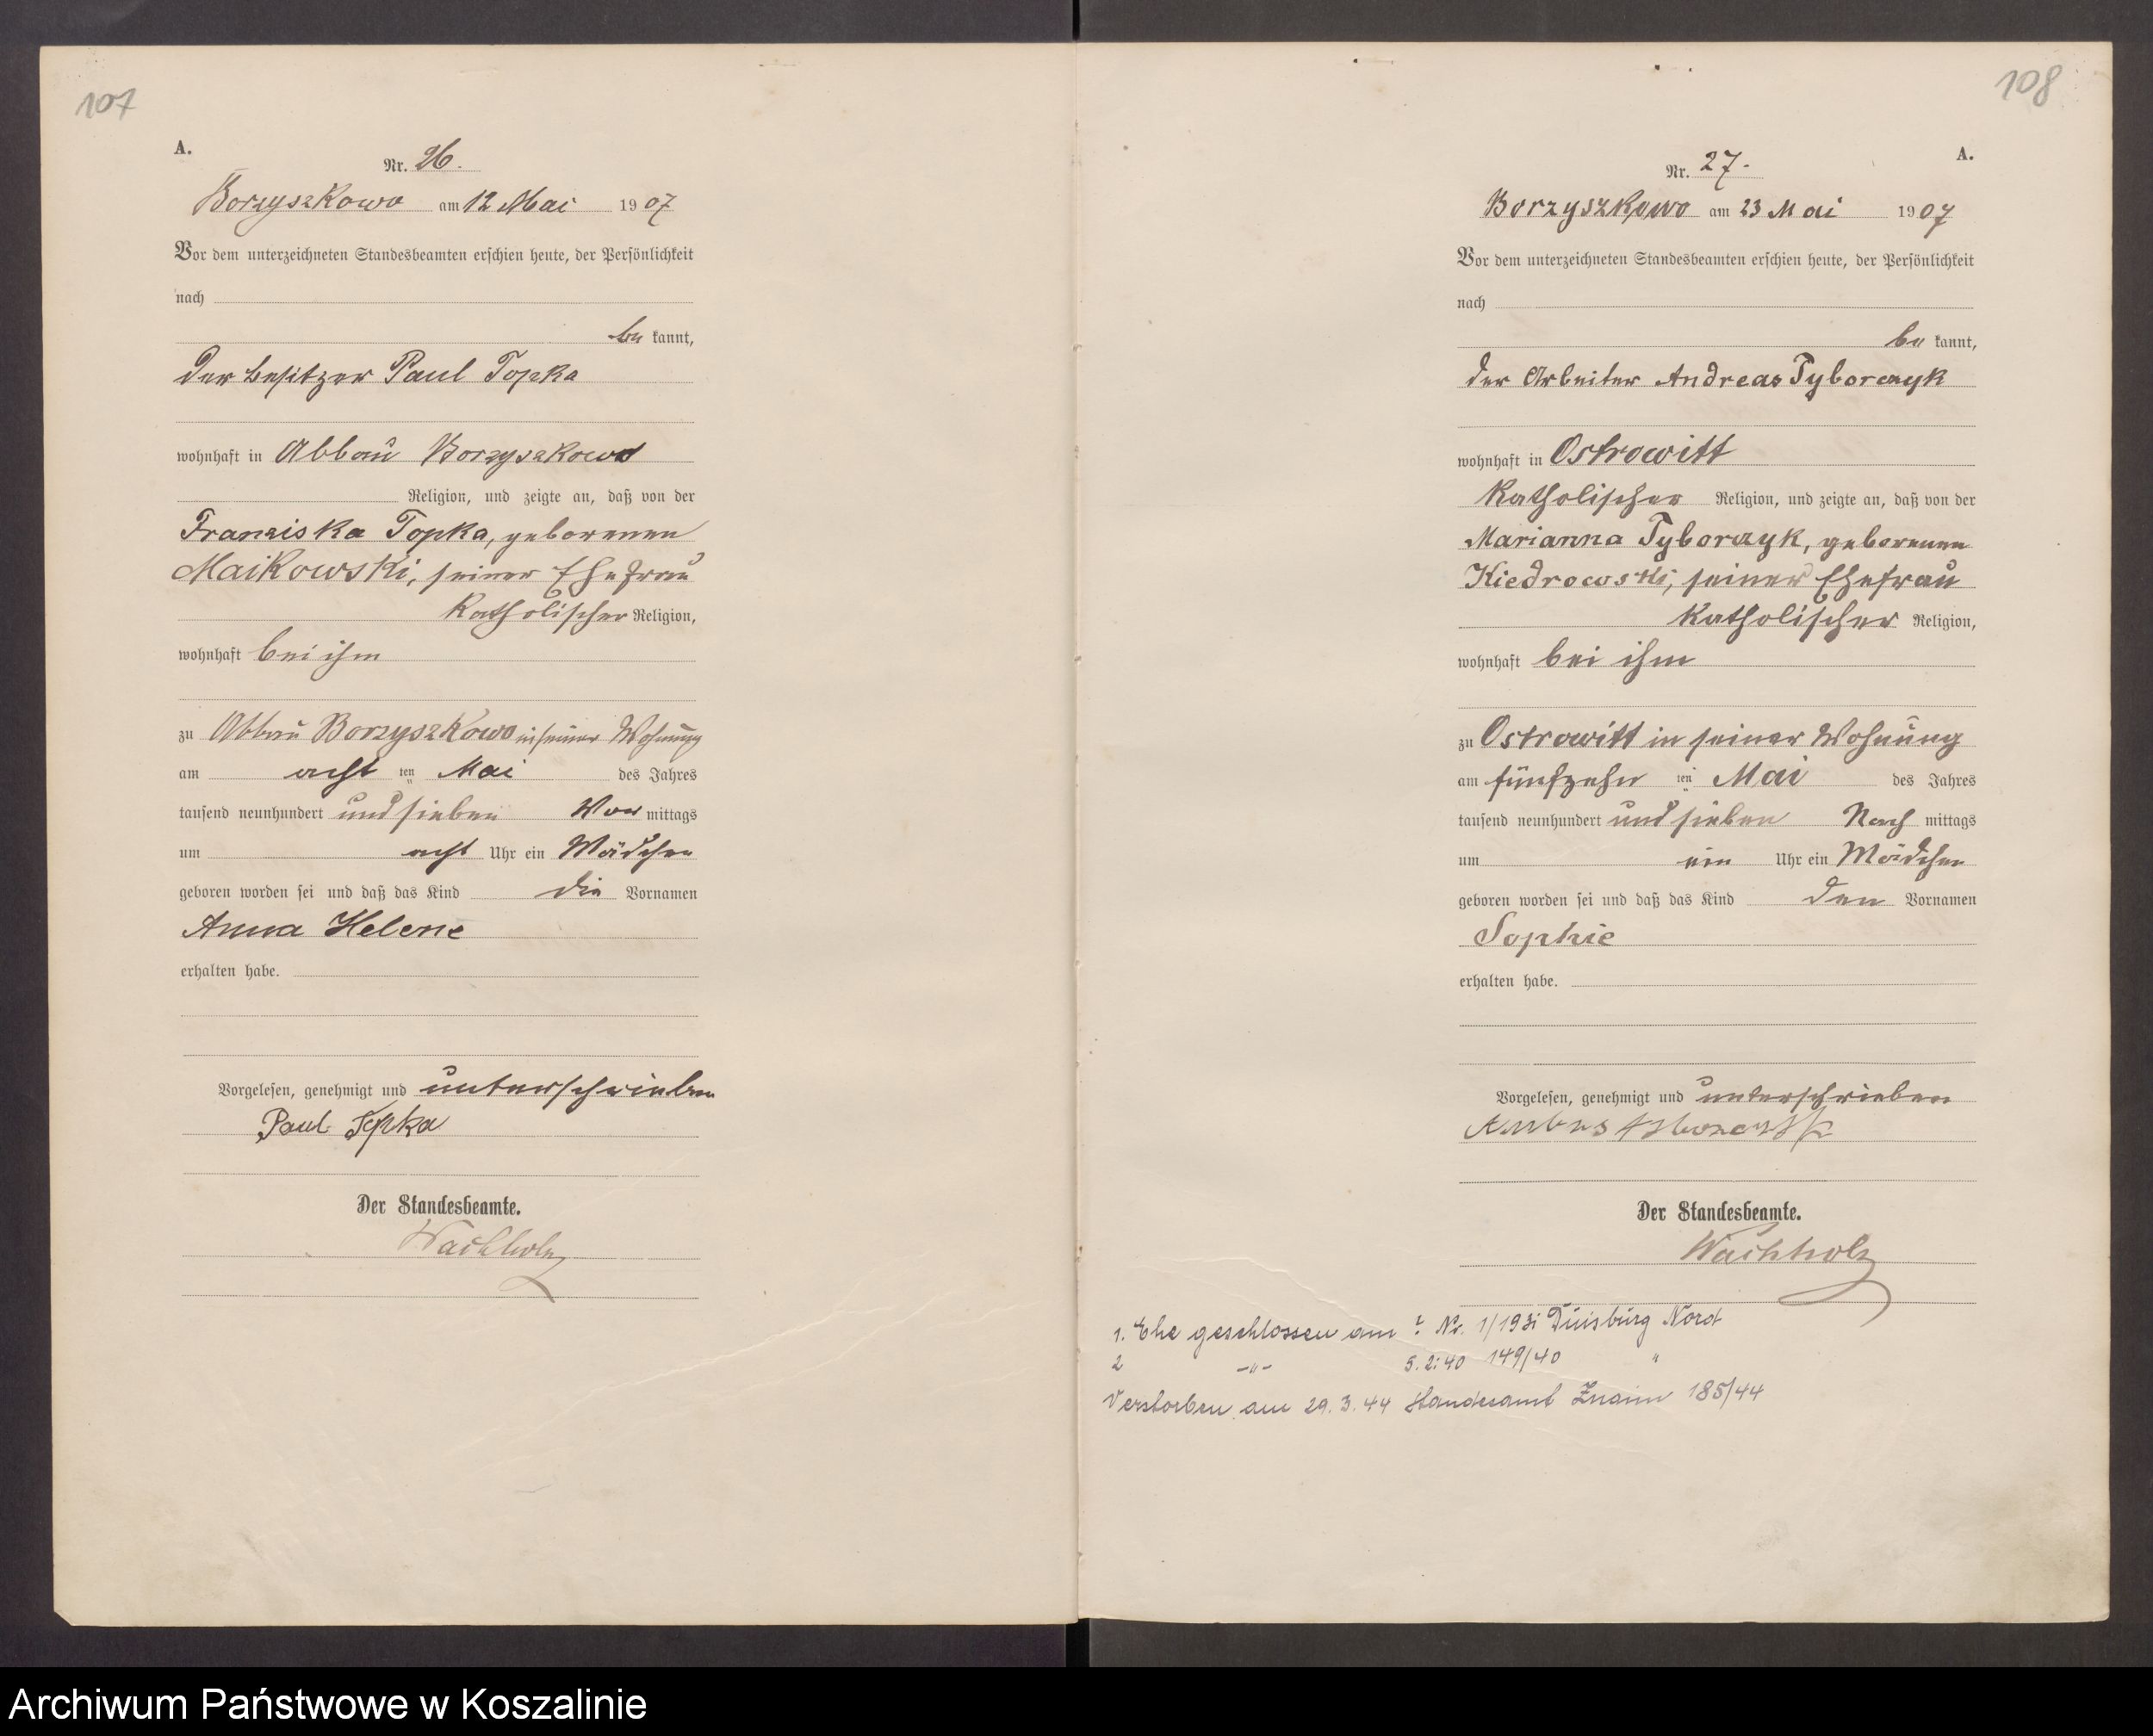 107
A.
Nr. 26.
Borzyszkowo am 12 Mai 1907
Vor dem unterzeichneten Standesbeamten erschien heute, der Persönlichkeit
nach
be kannt,
der Besitzer Paul Topka
wohnhaft in Abbau Borzyszkowo
Religion, und zeigte an, daß von der
Franziska Topka, geborenen
Maikowski, seiner Ehefrau
katholischer Religion,
wohnhaft bei ihm
zu Abbau Borzyszkowo in seiner Wohnung
am acht ten Mai des Jahres
tausend neunhundert und sieben Vor mittags
um acht Uhr ein Mädchen
geboren worden sei und daß das Kind die Vornamen
Anna Helene
erhalten habe.
Vorgelesen, genehmigt und unterschrieben
Paul Topka
Der Standesbeamte.
Wachholz
108
A.
Nr. 27.
Borzyszkowo am 23 Mai 1907
Vor dem unterzeichneten Standesbeamten erschien heute, der Persönlichkeit
nach
be kannt,
der Arbeiter Andreas Tyborczyk
wohnhaft in Ostrowitt
katholischer Religion, und zeigte an, daß von der
Marianna Tyborczyk, geborenen
Kiedrowski, seiner Ehefrau
katholischer Religion,
wohnhaft bei ihm
zu Ostrowitt in seiner Wohnung
am fünfzehn ten Mai des Jahres
tausend neunhundert und sieben Nach mittags
um ein Uhr ein Mädchen
geboren worden sei und daß das Kind den Vornamen
Sophie
erhalten habe.
Vorgelesen, genehmigt und unterschrieben
Der Standesbeamte.
Wachholz
1. Ehe geschlossen am ? Nr. 1/1931 Duisburg Nord
2 -"- 5.2.40 149/40 "
Verstorben am 29.3.44 Standesamt Znaim 185/44
Archiwum Państwowe w Koszalinie